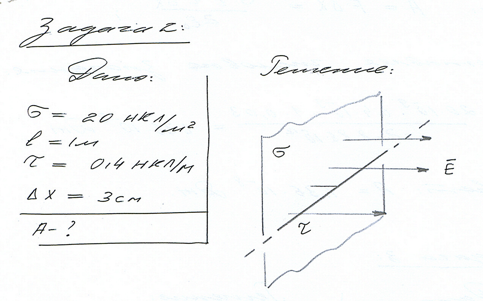 Задача 2:
Дано:
σ = 20 нКл/м²
l = 1м
τ = 0,4 нКл/м
Δx = 3 см
A - ?
Решение:
σ
E̅
τ